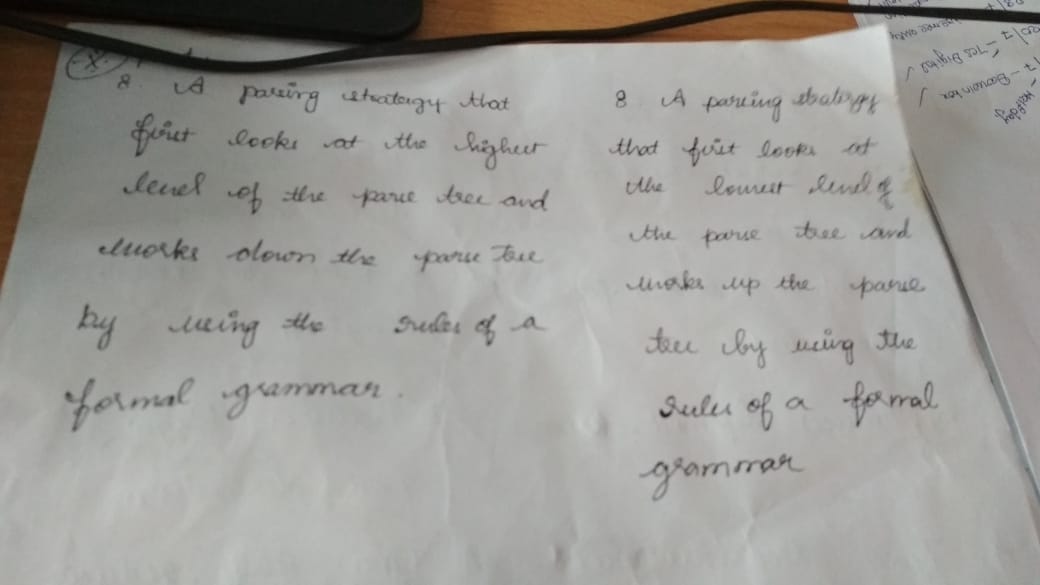 8. A parsing stratergy that
first looks at the highest
level of the parse tree and
works down the parse tree
by using the rules of a
formal grammar.
8 A parsing stratergy
that first looks at
the lowest level of
the parse tree and
works up the parse
tree by using the
rules of a formal
grammar
Tcs Digital